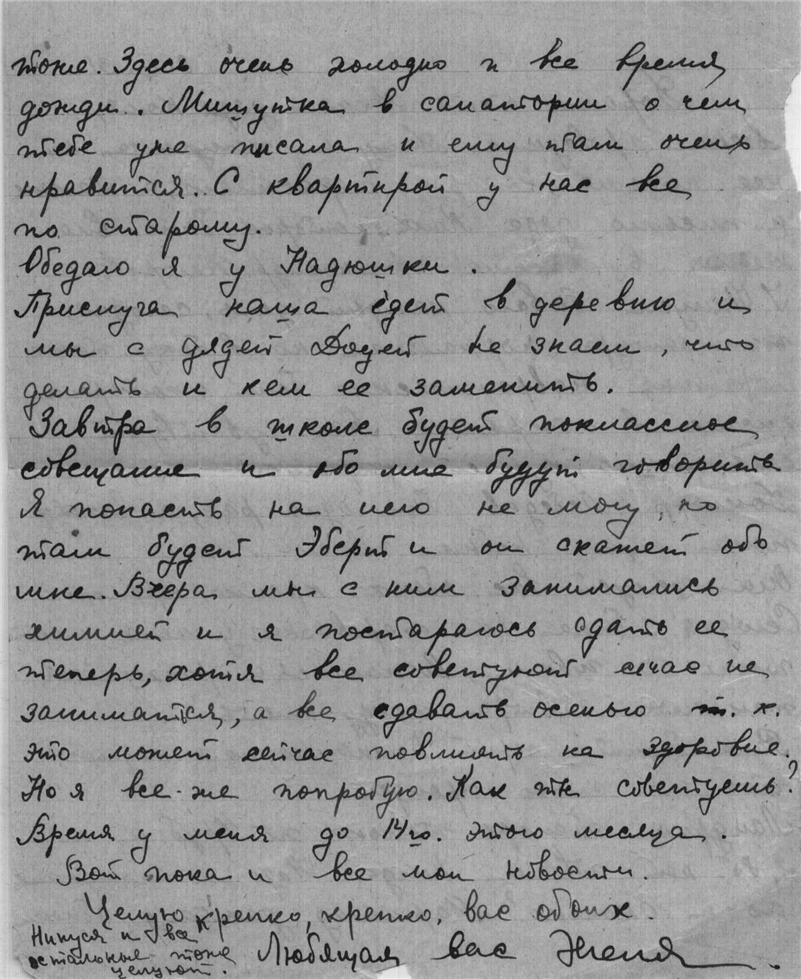 тоже. Здесь очень холодно и все время
дожди. Мишутка в санатории о чем
тебе уже писала и ему там очень
нравится. С квартирой у нас все
по старому.
Обедаю я у Надюшки.
Прислуга наша едет в деревню и
мы с дядей Додей не знаем, что
делать и кем ее заменить.
Завтра в школе будет поклассное
совещание и обо мне будут говорить
Я попасть на него не могу, но
там будет Эберт и он скажет обо
мне. Вчера мы с ним занимались
химией и я постараюсь сдать ее
теперь, хотя все советуют сичас не
заниматся, а все сдавать осенью т. к.
это может сейчас повлиять на здоровие.
Но я все-же попробую. Как ты советуешь?
Время у меня до 14го. этого месяца.
Вот пока и все мои новости.
Целую крепко, крепко, вас обоих.
Нинуся и все
остальные тоже
целуют.
Любящая вас Женя